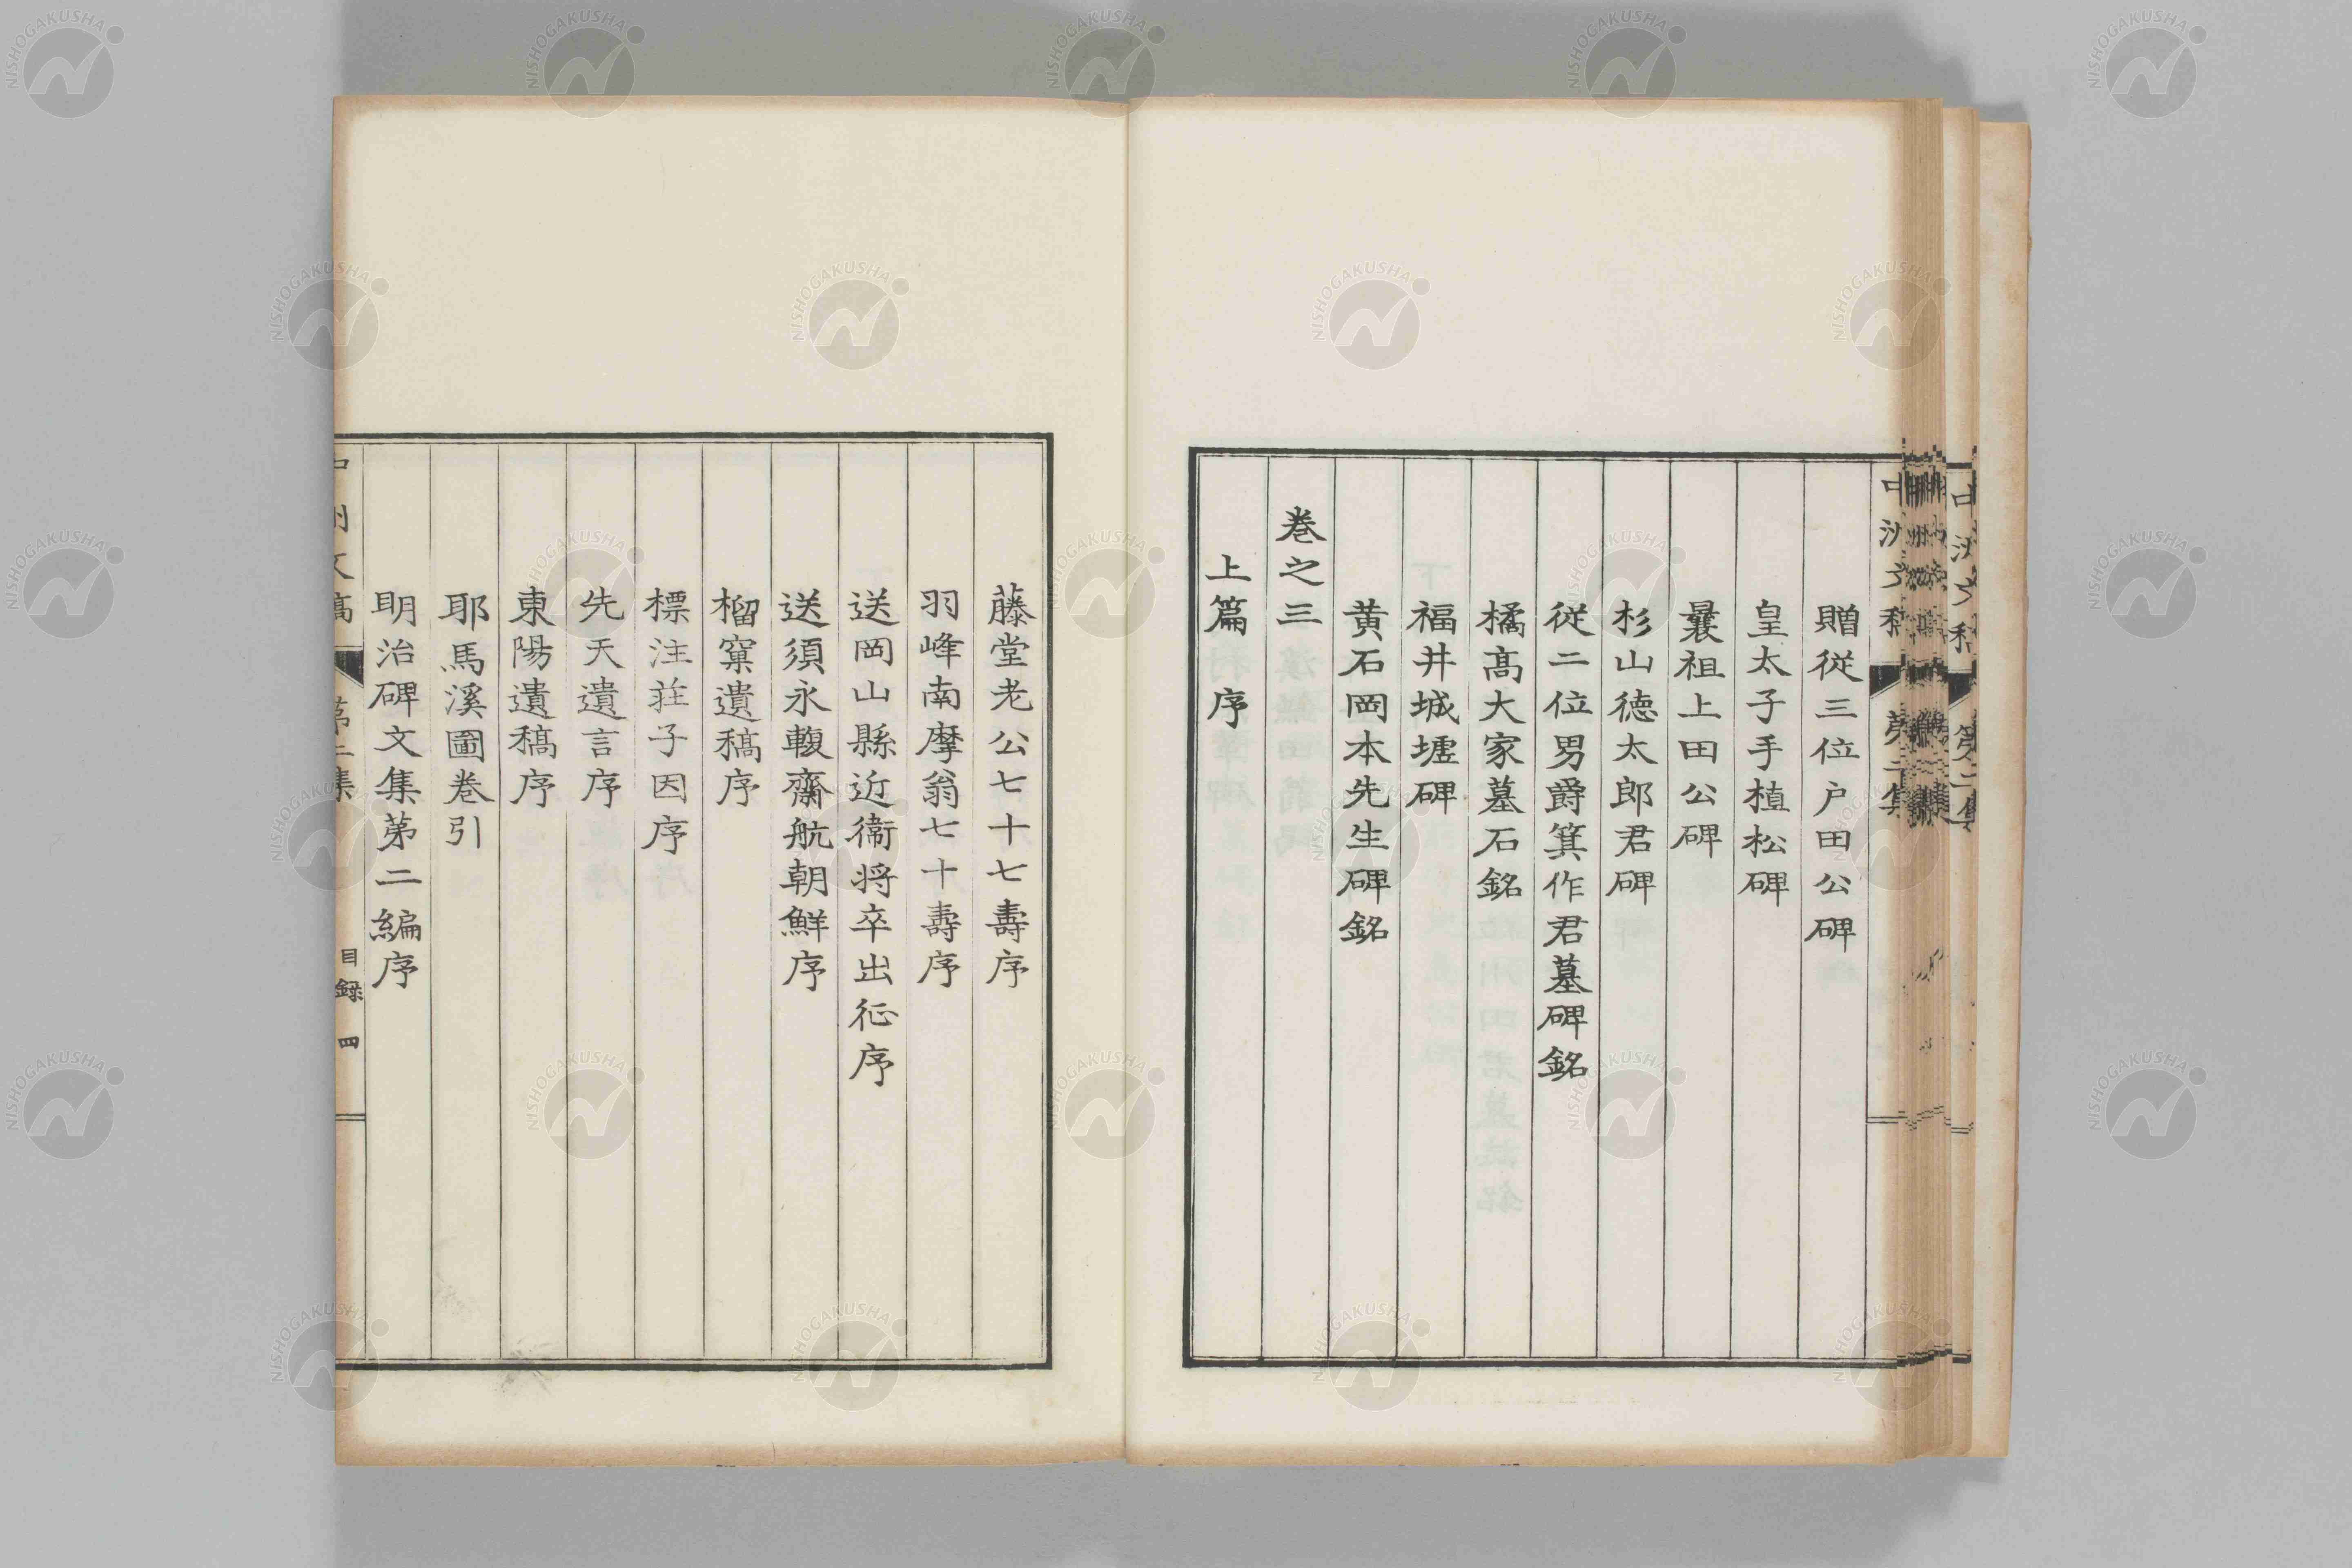 贈従三位戸田公碑
皇太子手植松碑
曩祖上田公碑
杉山德太郎君碑
従二位男爵箕作君墓碑銘
橘高大家墓石銘
福井城墟碑
黄石岡本先生碑銘
巻之三
上篇 序
藤堂老公七十七壽序
羽峰南摩翁七十壽序
送岡山縣近衞将卒出征序
送須永輹齋航朝鮮序
榴窠遺稿序
標注荘子因序
先天遺言序
東陽遺稿序
耶馬溪圖巻引
明治碑文集第二編序
目録 四
NISHOGAKUSHA